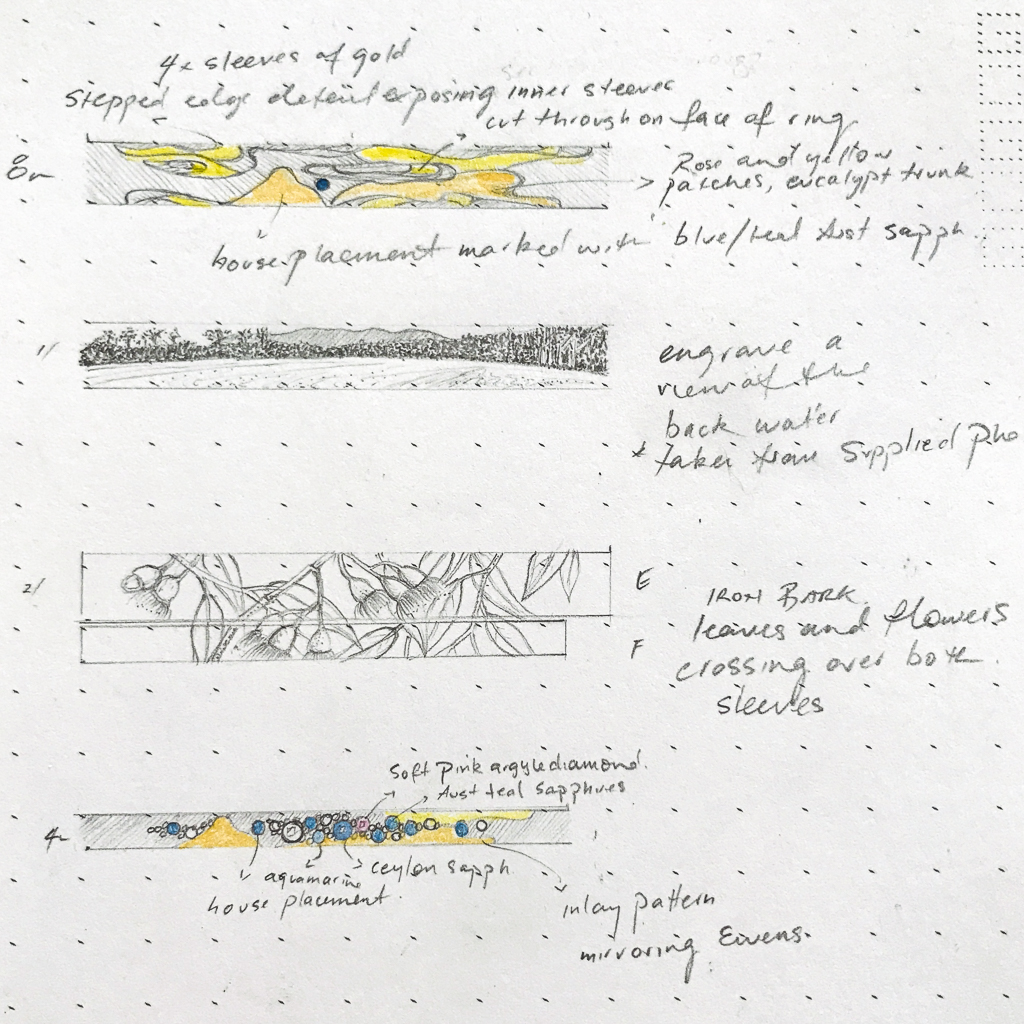 4x sleeves of gold
Stepped edge detail exposing inner sleeves
cut through on face of ring
8m
Rose and yellow
patches, eucalypt trunk
house placment marked with blue/teal Aust sapph
1/
engrave a
view of the
back water
* taken from Supplied Pho
2/
E
F
IRON BARK
leaves and flowers
crossing over both
sleeves
soft pink argyle diamond.
Aust teal sapphires
4
aquamarine
ceylon sapph
house placement
inlay pattern
mirroring Ewens.